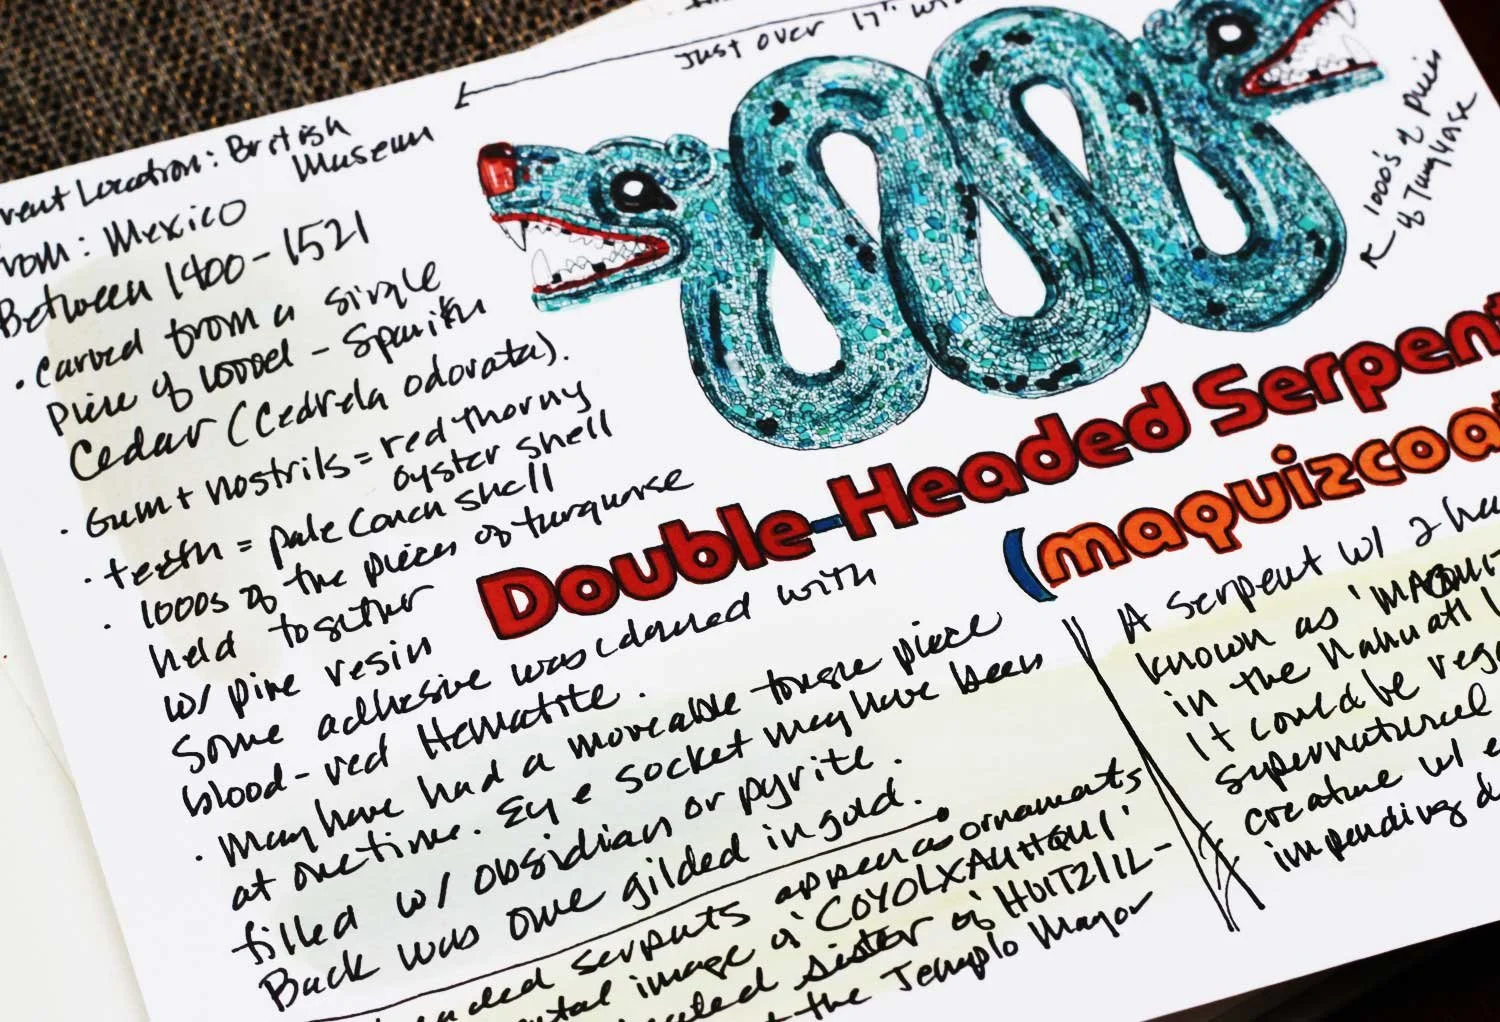 Just over 17" wi
rent Location: British
Museum
rom: Mexico
Between 1400-1521
• carved from a single
piece of wood - Spanish
Cedar (Cedrela odorata).
• Gum + nostrils = red thorny
oyster shell
• teeth = pale conch shell
• 1000s of the pieces of turquoise
held together
w/ pine resin
Some adhesive was adorned with
blood-red Hematite.
• May have had a moveable tongue piece
at one time. Eye socket may have been
filled w/ obsidian or pyrite.
Back was once gilded in gold.
eaded serpents appear as ornaments
ntal image of 'COYOLXAUHQUI'
eated sister of 'HUITZILIL-
t the Templo Mayor
1000's of pieces
of Turquoise
Double-Headed Serpent
(maquizcoa
A serpent w/ 2 hea
known as 'MAQUIZ
in the Nahuatl l
It could be rega
supernatural
creature w/ e
impending d